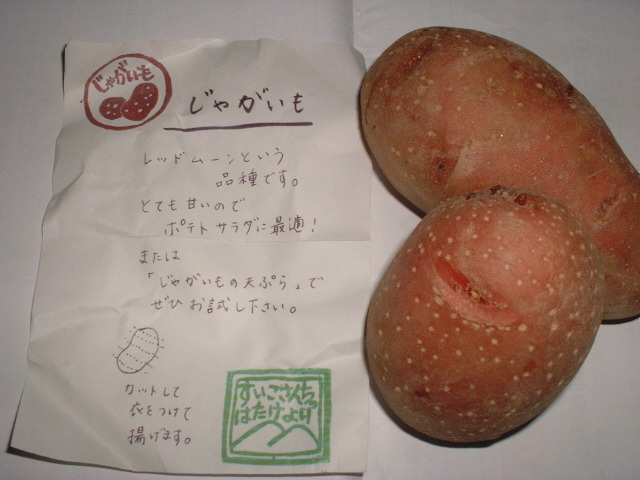 じゃがいも
じゃがいも
レッドムーンという
品種です。
とても甘いので
ポテトサラダに最適!
または
「じゃがいもの天ぷら」で
ぜひお試し下さい。
カットして
衣をつけて
揚げます。
すいこさんちの
はたけより